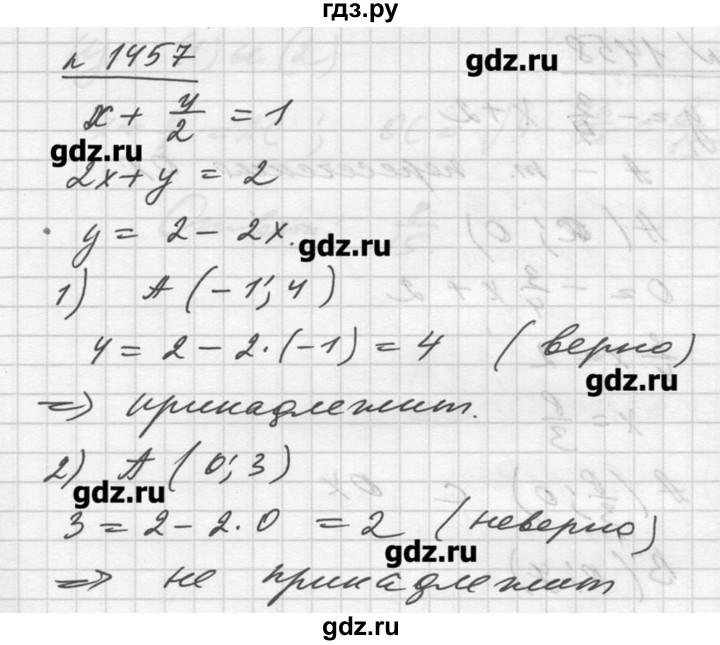 гдз.ру
n 1457
gdz.ru
x + y/2 = 1
gdz.ru
2x + y = 2
y = 2 - 2x.
gdz.ru
1) A (-1; 4)
4 = 2 - 2·(-1) = 4 (верно)
gdz.ru
=> принадлежит.
2) A (0; 3)
gdz.ru
3 = 2 - 2·0 = 2 (неверно)
gdz.ru
=> не принадлежит
gdz.ru